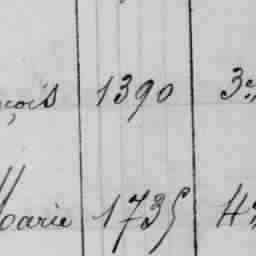 çois 1390 3e
Marie 1735 4e